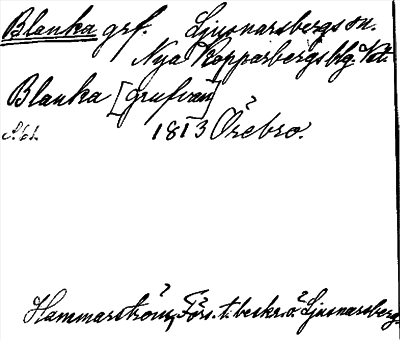 Blanka grf. Ljusnarsbergs sn.
Nya Kopparbergs blg. Vstl.
Blanka [grufvan]
S. 62 1813 Örebro.
Hammarström, Förs. t. beskr. ö. Ljusnarsberg.